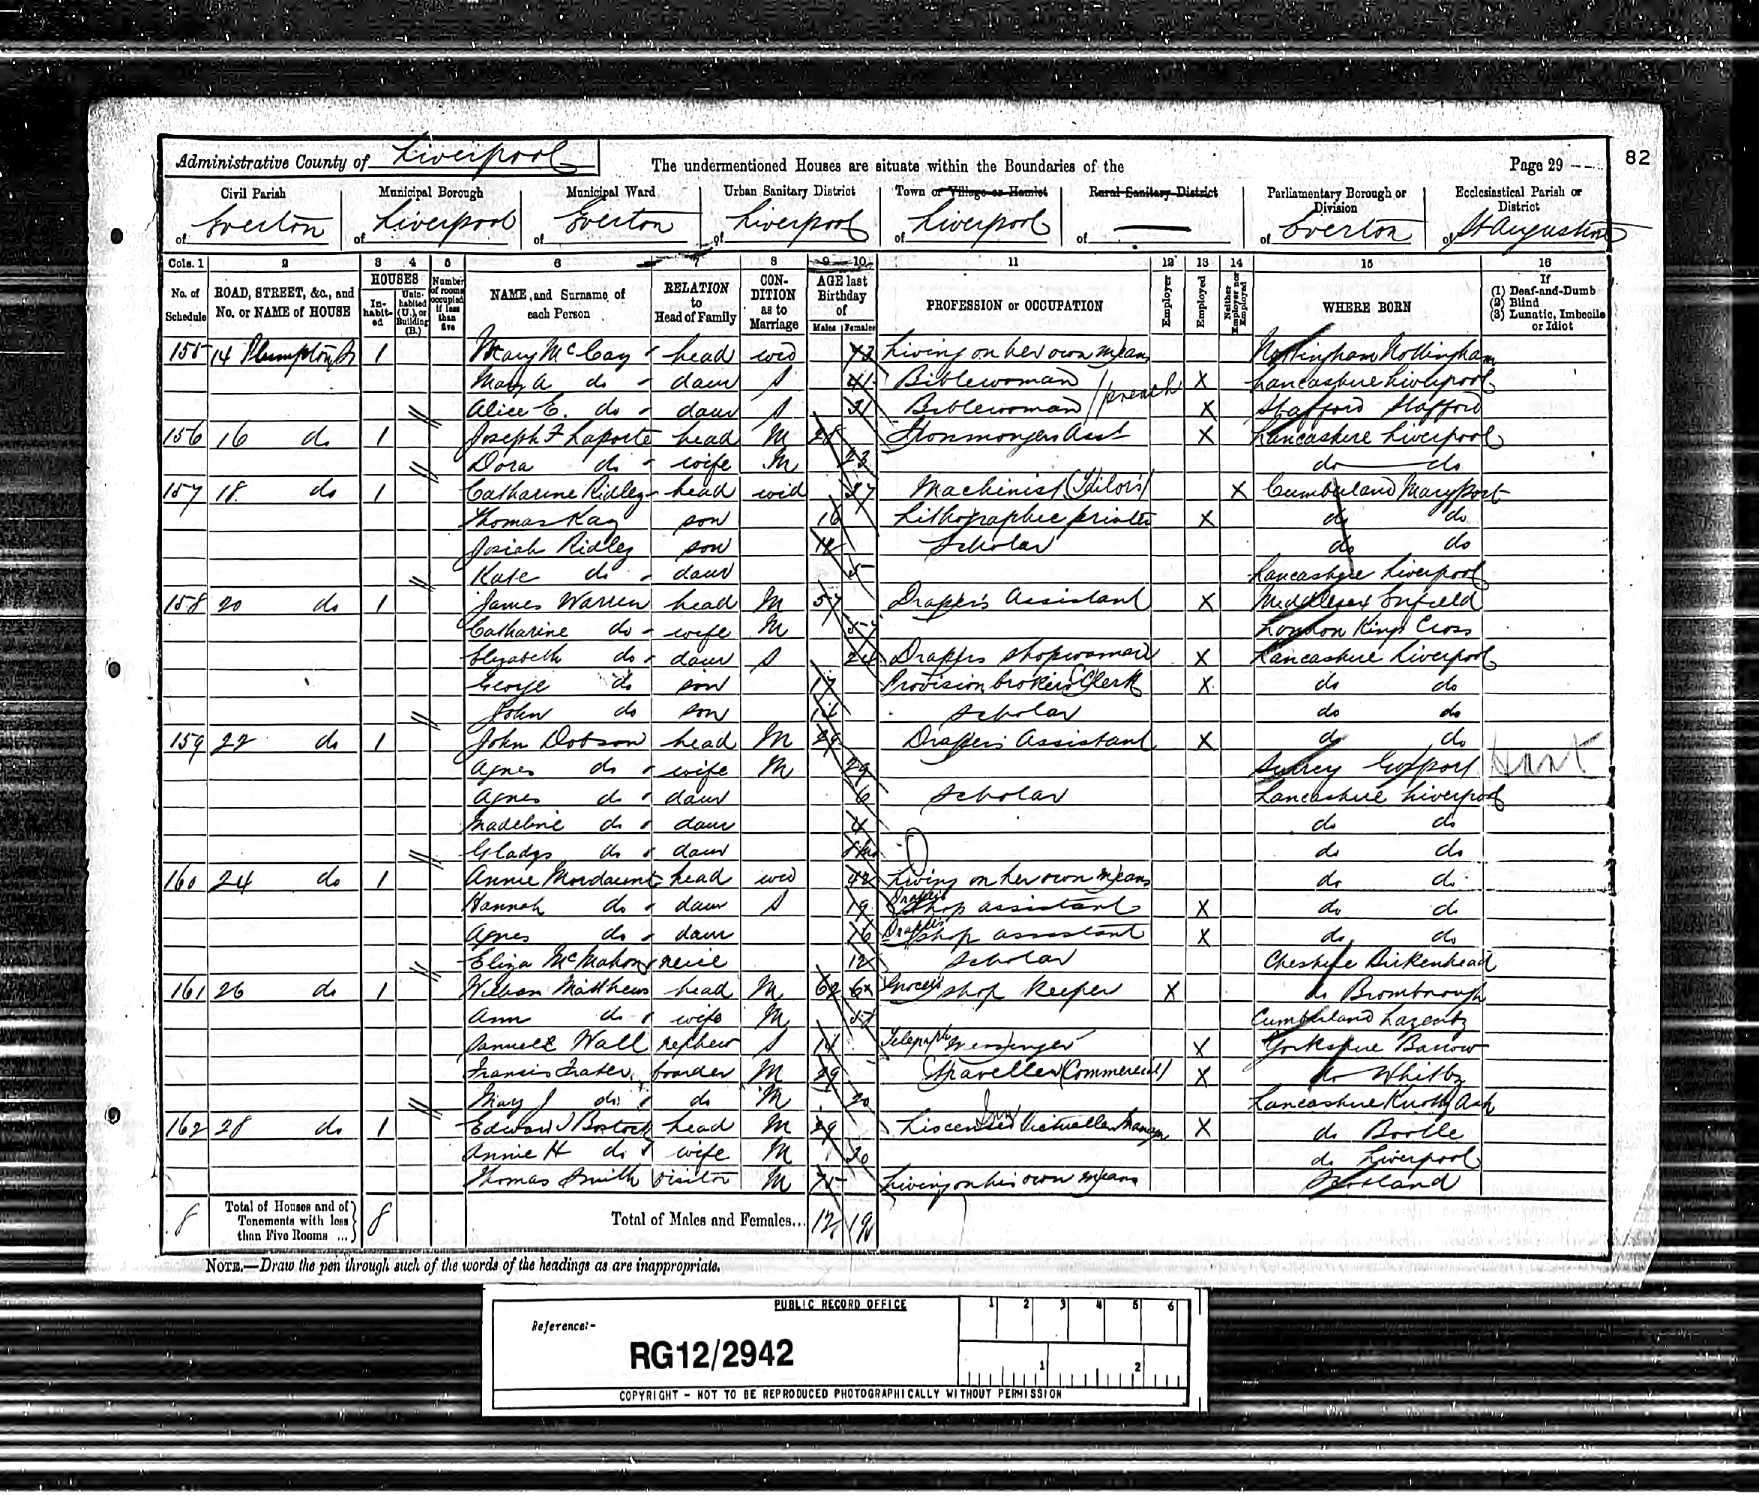 82
Administrative County of Liverpool The undermentioned Houses are situate within the Boundaries of the Page 29
Civil Parish Municipal Borough Municipal Ward Urban Sanitary District Town or Village or Hamlet Rural Sanitary District Parliamentary Borough or Division Ecclesiastical Parish or District
of Everton of Liverpool of Everton of Liverpool of Liverpool of of Everton of St Augustine
Cols. 1 2 3 4 5 6 7 8 9 10 11 12 13 14 15 16
No. of Schedule ROAD, STREET, &c., and No. or NAME of HOUSE HOUSES Inhabited Uninhabited (U.), or Building (B.) Number of rooms occupied if less than five NAME and Surname of each Person RELATION to Head of Family CONDITION as to Marriage AGE last Birthday of Males Females PROFESSION or OCCUPATION Employer Employed Neither Employer nor Employed WHERE BORN If (1) Deaf-and-Dumb (2) Blind (3) Lunatic, Imbecile or Idiot
155 14 Plumpton St 1 Mary McCay head wid Living on her own means Nottingham Nottingham
Mary A do daur S 41 Biblewoman preach X Lancashire Liverpool
Alice E. do daur S 31 Biblewoman X Stafford Stafford
156 16 do 1 Joseph F Laporte head M 28 Ironmongers Asst X Lancashire Liverpool
Dora do wife M 23 do do
157 18 do 1 Catharine Ridley head wid 37 Machinist (Tailors) X Cumberland Maryport
Thomas Kay son 16 Lithographic printer X do do
Josiah Ridley son 12 Scholar do do
Kate do daur 5 Lancashire Liverpool
158 20 do 1 James Warren head M 57 Draper's Assistant X Middlesex Enfield
Catharine do wife M London Kings Cross
Elizabeth do daur S 24 Drapers shopwoman X Lancashire Liverpool
George do son 17 Provision brokers Clerk X do do
John do son 14 Scholar do do
159 22 do 1 John Dobson head M 29 Draper's Assistant X do do
Agnes do wife M 29 Surrey Gosport Hant
Agnes do daur 6 Scholar Lancashire Liverpool
Madeline do daur 4 do do
Gladys do daur do do
160 24 do 1 Annie Mordaunt head wid 42 Living on her own means do do
Hannah do daur S 19 Drapers shop assistant X do do
Agnes do daur 16 Drapers shop assistant X do do
Eliza McMahon neice 12 Scholar Cheshire Birkenhead
161 26 do 1 William Matthews head M 62 62 Grocers shop keeper X do Bromborough
Ann do wife M 58 Cumberland Lazenby
Samuel Wall nephew S 14 Telegraph Messenger X Yorkshire Barrow
Francis Frater boarder M 29 Traveller (Commercial) X do Whitby
Mary J do do M 20 Lancashire Knotty Ash
162 28 do 1 Edward J Bostock head M 29 Liscensed Victualler Manager X do Bootle
Annie H do wife M 30 do Liverpool
Thomas Smith visitor M 75 Living on his own means Scotland
8 Total of Houses and of Tenements with less than Five Rooms ... 8 Total of Males and Females... 12 19
NOTE.—Draw the pen through such of the words of the headings as are inappropriate.
PUBLIC RECORD OFFICE 1 2 3 4 5 6
Reference:-
RG12/2942 1 2
COPYRIGHT - NOT TO BE REPRODUCED PHOTOGRAPHICALLY WITHOUT PERMISSION